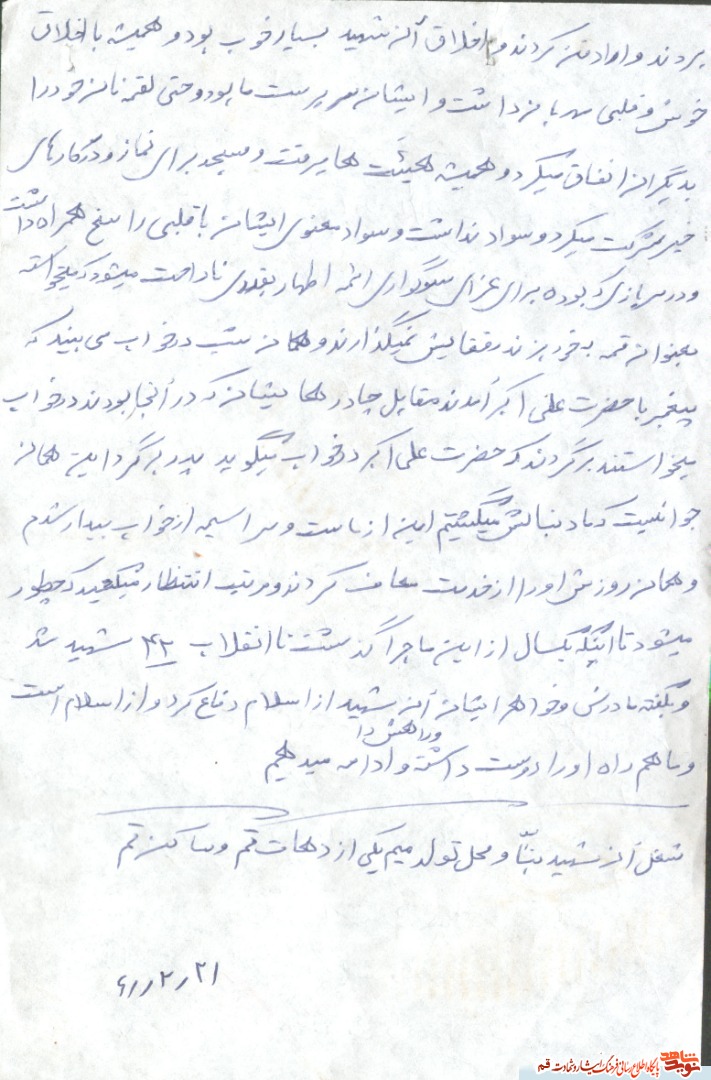 بردند و او را دفن کردند و اخلاق آن شهید بسیار خوب بود و همیشه با اخلاق
خوش و قلبی مهربان داشت و ایشان سرپرست ما بود و حتی لقمه نان خود را
بدیگران انفاق میکرد و همیشه هیئت ها میرفت و مسجد برای نماز و در کارهای
خیر شرکت میکرد و سواد نداشت و سواد معنوی ایشان با قلبی راسخ همراه داشت
و در سربازی که بوده برای عزای سوگواری ائمه اطهار بقدری ناراحت میشود که میخواسته
بعنوان قمه به خود بزند رفقایش نمیگذارند و همان شب در خواب می بیند که
پیغمبر با حضرت علی اکبر آمدند مقابل چادرهایشان که در آنجا بودند در خواب
میخواستند برگردند که حضرت علی اکبر در خواب میگوید پدر برگرد این همان
جوانیست که ما دنبالش میگشتیم این از ماست و سراسیمه از خواب بیدار شدم
و همان روزش او را از خدمت معاف کردند و مرتب انتظار میکشید که چطور
میشود تا اینکه یکسال از این ماجرا گذشت تا انقلاب ۴۲ شهید شد
و بگفته مادرش و خواهر ایشان آن شهید از اسلام دفاع کرد و از اسلام است
و ما هم راه او را دوست داشته و راهش را ادامه میدهیم
شغل آن شهید بنّا و محل تولد میم یکی از دهات قم و ساکن قم
۶۱٫۲٫۲۱
نوید شاهد
پایگاه اطلاع رسانی فرهنگ ایثار و شهادت قم